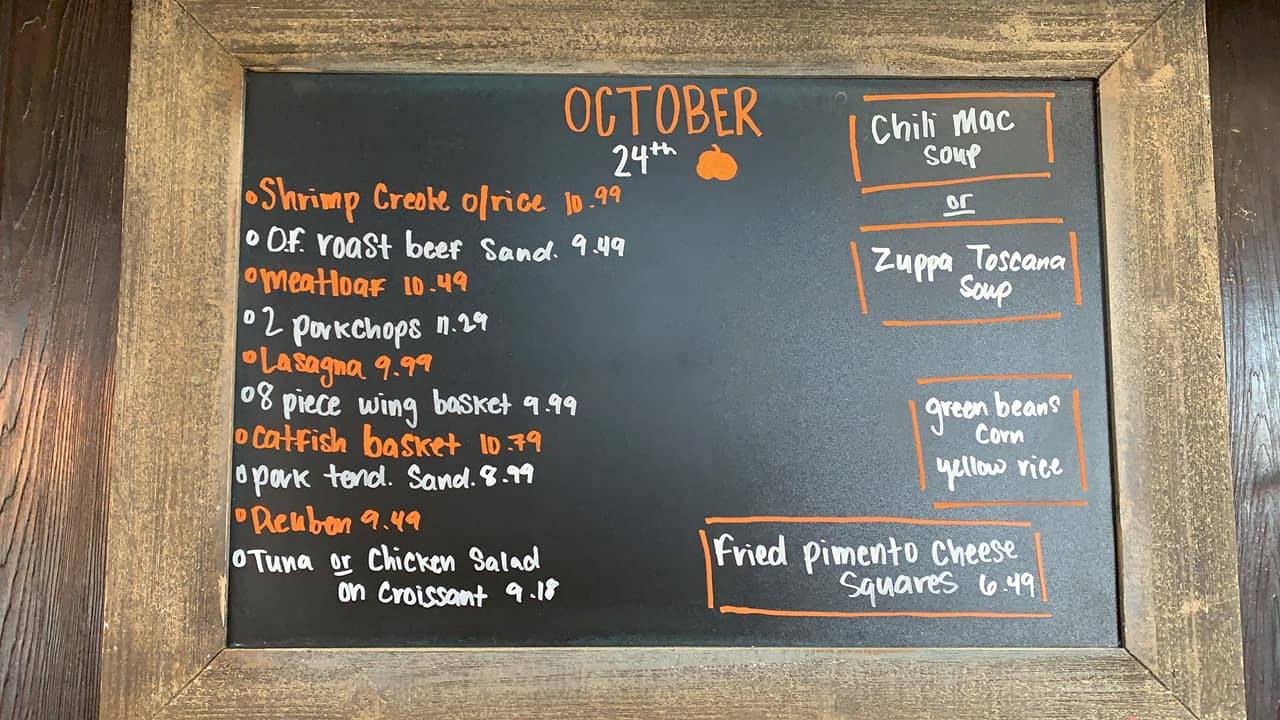 OCTOBER
24th
Shrimp Creole o/rice 10.99
O.F. roast beef Sand. 9.49
meatloaf 10.49
2 porkchops 11.29
Lasagna 9.99
8 piece wing basket 9.99
catfish basket 10.79
pork tend. Sand. 8.99
Reuben 9.49
Tuna or Chicken Salad
on Croissant 9.18
Chili Mac
Soup
or
Zuppa Toscana
Soup
green beans
corn
yellow rice
Fried pimento cheese
Squares 6.49